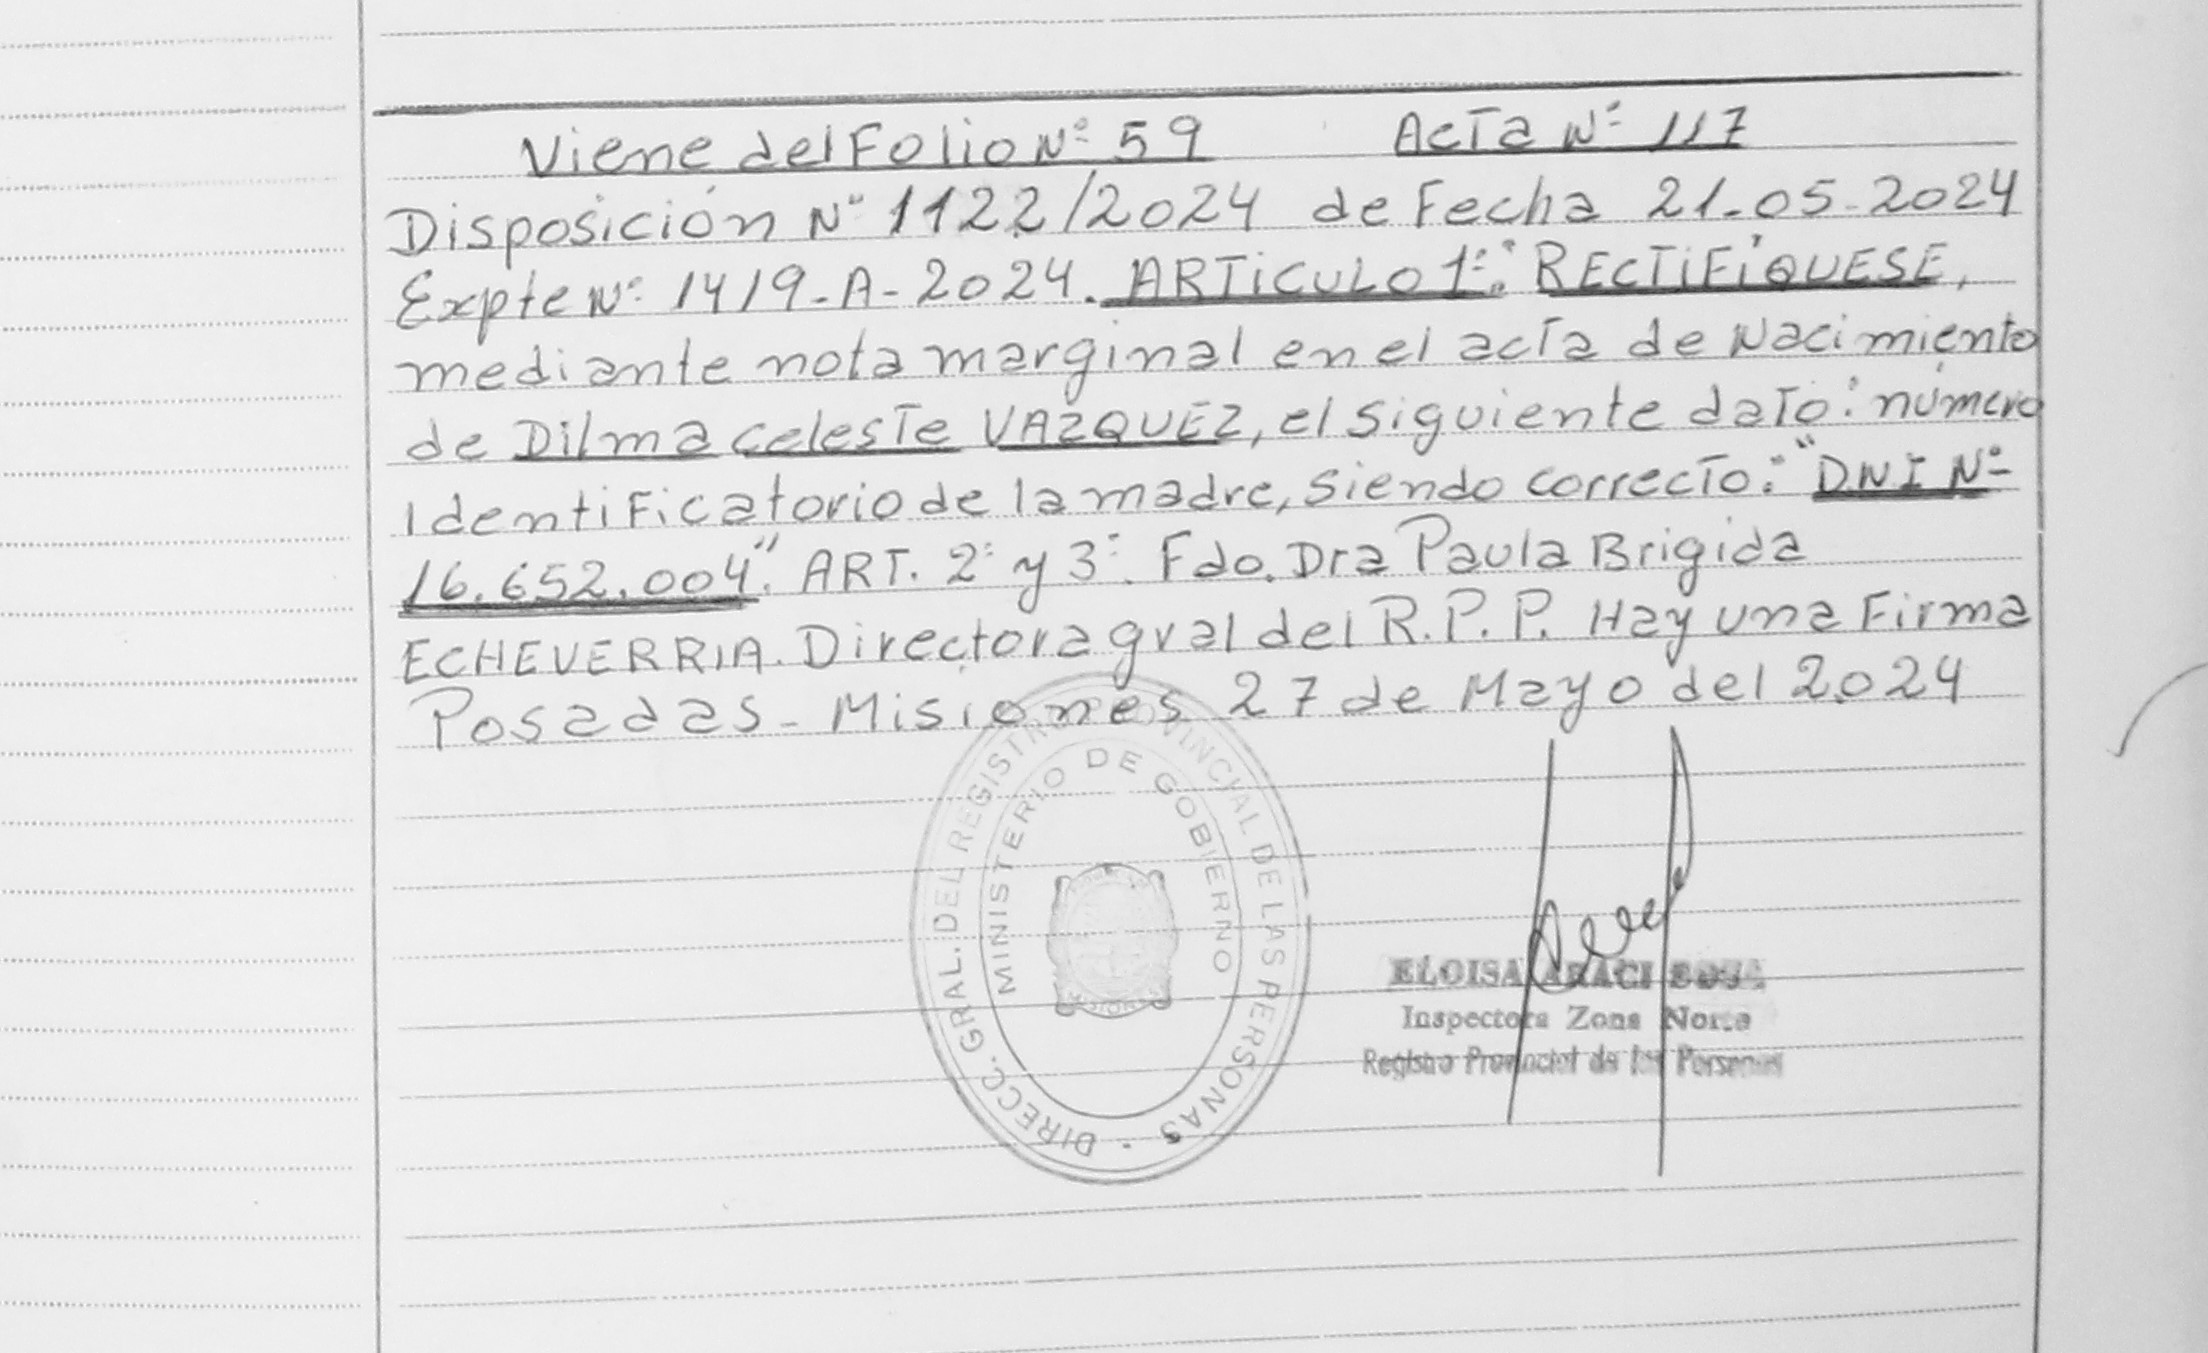 Viene del Folio Nº 59 Acta Nº 117
Disposición Nº 1122/2024 de Fecha 21-05-2024
Expte Nº 1419-A-2024. ARTiCULO 1º: RECTiFíQUESE,
mediante nota marginal en el acta de Nacimiento
de Dilma Celeste VAZQUEZ, el siguiente dato: número
identificatorio de la madre, siendo correcto: "D.N.I Nº
16.652.004". ART. 2º y 3º. Fdo. Dra Paula Brigida
ECHEVERRIA. Directora gral del R.P.P. Hay una Firma
Posadas - Misiones 27 de Mayo del 2024
DIRECC. GRAL. DEL REGISTRO PROVINCIAL DE LAS PERSONAS
MINISTERIO DE GOBIERNO
ELOISA ARACI
Inspectora Zona Norte
Registro Provincial de las Personas